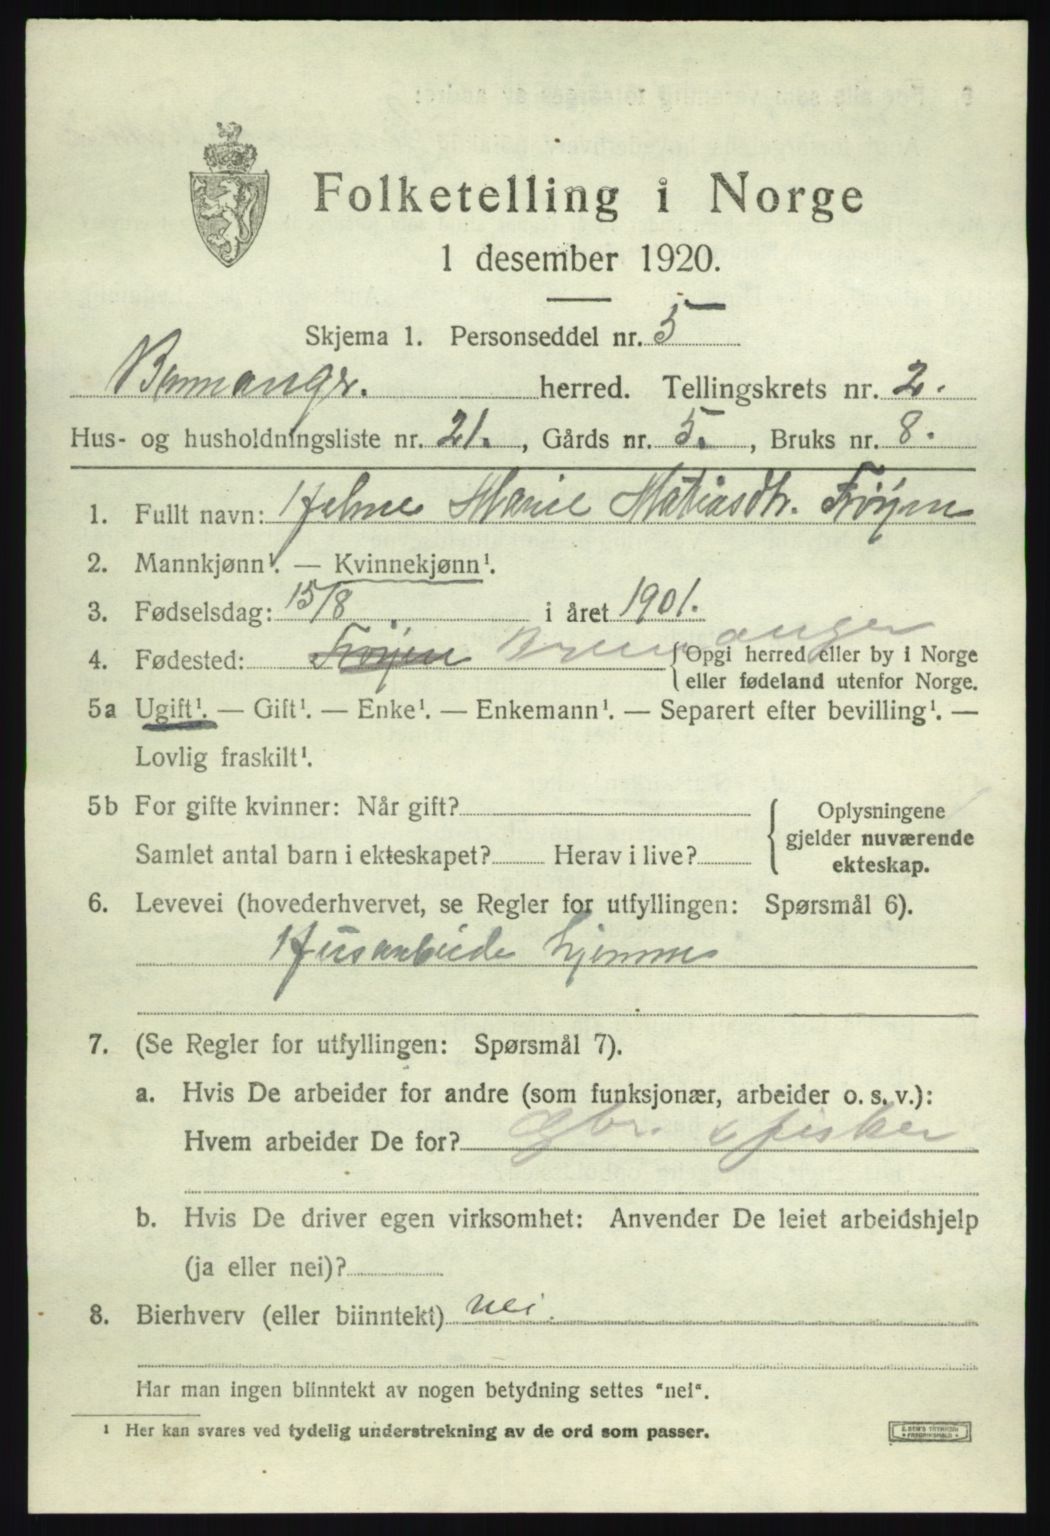 Folketelling i Norge
1 desember 1920.
Skjema 1. Personseddel nr. 5
Bremanger. herred. Tellingskrets nr. 2.
Hus- og husholdningsliste nr. 21. , Gårds nr. 5. , Bruks nr. 8.
1. Fullt navn: Marie Matiasdtr. Frøyen
2. Mannkjønn¹. — Kvinnekjønn¹.
3. Fødselsdag: 15/8 i året 1901.
4. Fødested: Frøyen Bremanger {Opgi herred eller by i Norge
eller fødeland utenfor Norge.
5a Ugift¹. — Gift¹. — Enke¹. — Enkemann¹. — Separert efter bevilling¹. —
Lovlig fraskilt¹.
5b For gifte kvinner: Når gift?
Samlet antal barn i ekteskapet? Herav i live?
{ Oplysningene
gjelder nuværende
ekteskap.
6. Levevei (hovederhvervet, se Regler for utfyllingen: Spørsmål 6).
Husarbeide hjemme
7. (Se Regler for utfyllingen: Spørsmål 7).
a. Hvis De arbeider for andre (som funksjonær, arbeider o. s. v.):
Hvem arbeider De for? Gbr. & fisker
b. Hvis De driver egen virksomhet: Anvender De leiet arbeidshjelp
(ja eller nei)?
8. Bierhverv (eller biinntekt) nei.
Har man ingen biinntekt av nogen betydning settes "nei".
¹ Her kan svares ved tydelig understrekning av de ord som passer.